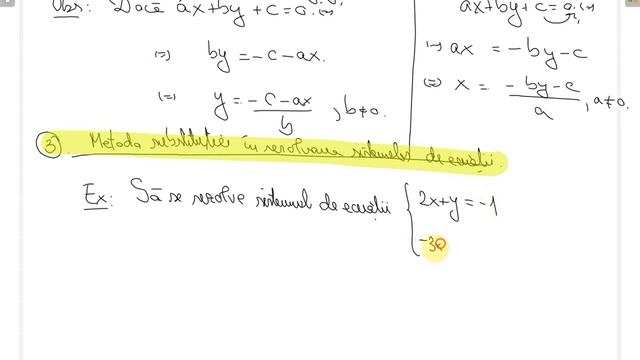 Obs: Dacă ax+by+c=0 (=)
(=) by=-c-ax.
(=) y = \frac{-c-ax}{b}, b≠0.
ax+by+c=0 (=)
(=) ax = -by-c
(=) x = \frac{-by-c}{a}, a≠0.
3. Metoda substituției în rezolvarea sistemelor de ecuații.
Ex: Să se rezolve sistemul de ecuații { 2x+y=-1
-3